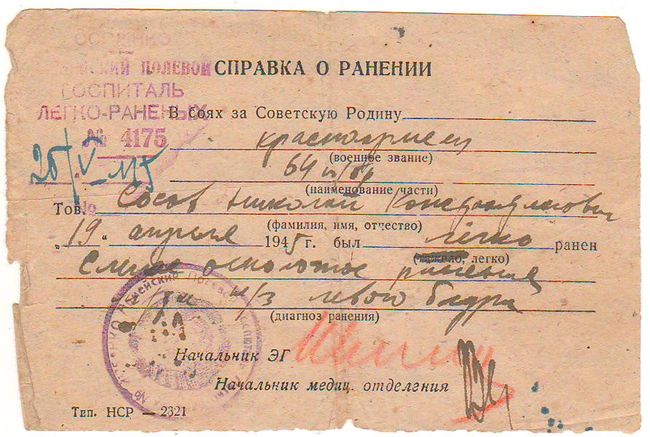 ПОЛЕВОЙ
ГОСПИТАЛЬ
ЛЕГКО-РАНЕНЫХ
№ 4175
25/V-45
СПРАВКА О РАНЕНИИ
В боях за Советскую Родину
красноармеец
(военное звание)
64
(наименование части)
Тов. Сосов Николай
(фамилия, имя, отчество)
"19" апреля 1945 г. был легко ранен
(тяжело, легко)
Слепое осколочное ранение
н/з левого бедра
(диагноз ранения)
Начальник ЭГ
Начальник медиц. отделения
Тип. НСР — 2321